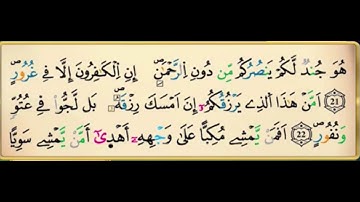 هُوَ جُندٌ لَّكُمْ يَنصُرُكُم مِّن دُونِ اِ۬لرَّحْمَٰنِۖ إِنِ اِ۬لْكَٰفِرُونَ إِلَّا فِے غُرُورٍۖ
21 اَمَّنْ هَٰذَا اَ۬لذِے يَرْزُقُكُمُۥٓ إِنَ اَمْسَكَ رِزْقَهُۥۖ بَل لَّجُّواْ فِے عُتُوّٖ
وَنُفُورٍۖ 22 اَفَمَنْ يَّمْشِے مُكِبّاً عَلَىٰ وَجْهِهِۦٓ أَهْد۪ىٰٓ أَمَّنْ يَّمْشِے سَوِيّاً